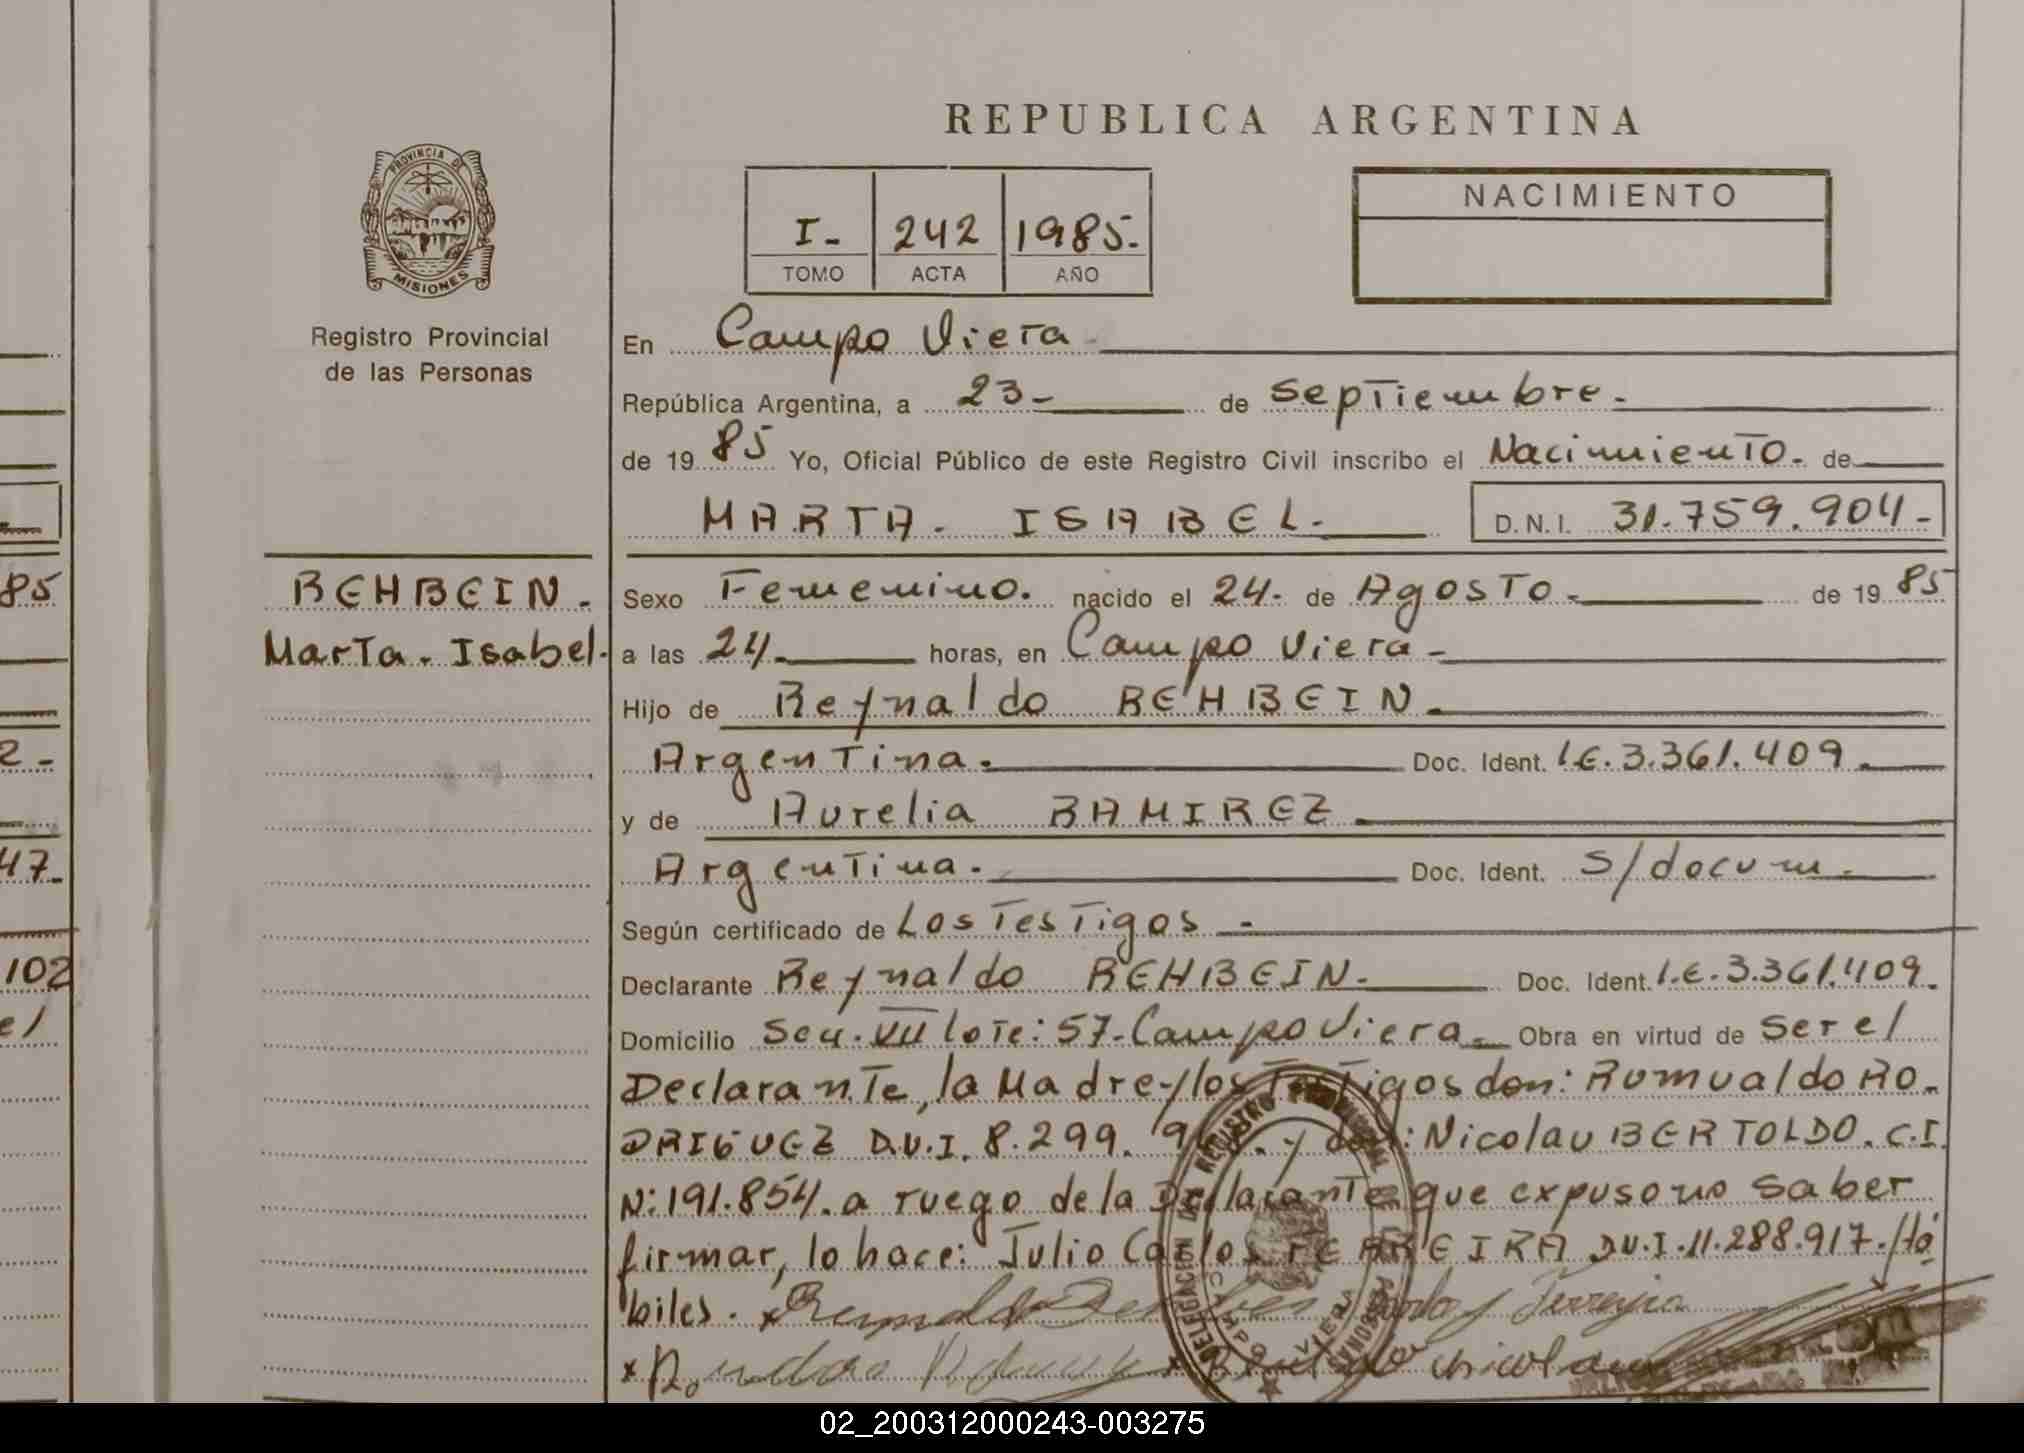 REPUBLICA ARGENTINA
PROVINCIA DE
MISIONES
Registro Provincial
de las Personas
I- 242 1985-
TOMO ACTA AÑO
NACIMIENTO
En Campo Viera
República Argentina, a 23- de Septiembre.
de 19 85 Yo, Oficial Público de este Registro Civil inscribo el Nacimiento. de
MARTA. ISABEL. D.N.I. 31.759.904-
BEHBEIN.
Marta. Isabel.
Sexo Femenino. nacido el 24. de Agosto. de 19 85
a las 24. horas, en Campo Viera-
Hijo de Reynaldo BEHBEIN.
Argentina. Doc. Ident. l.E. 3.361.409.
y de Aurelia RAMIREZ
Argentina. Doc. Ident. S/docum.
Según certificado de Los Testigos -
Declarante Reynaldo BEHBEIN. Doc. Ident. l.E. 3.361.409.
Domicilio Secc. VII lote: 57-Campo Viera. Obra en virtud de Ser el
Declarante, la Madre y los Testigos don: Romualdo RO-
DRIGUEZ D.N.I. 8.299. y don: Nicolau BERTOLDO. C.I.
N: 191.854. a ruego de la Declarante que expuso no saber
firmar, lo hace: Julio Carlos FERREIRA D.N.I. 11.288.917./Há
biles.
85
2-
47.
102
el
DELEGACION DEL REGISTRO PROVINCIAL DE LAS PERSONAS
CAMPO VIERA
02_200312000243-003275